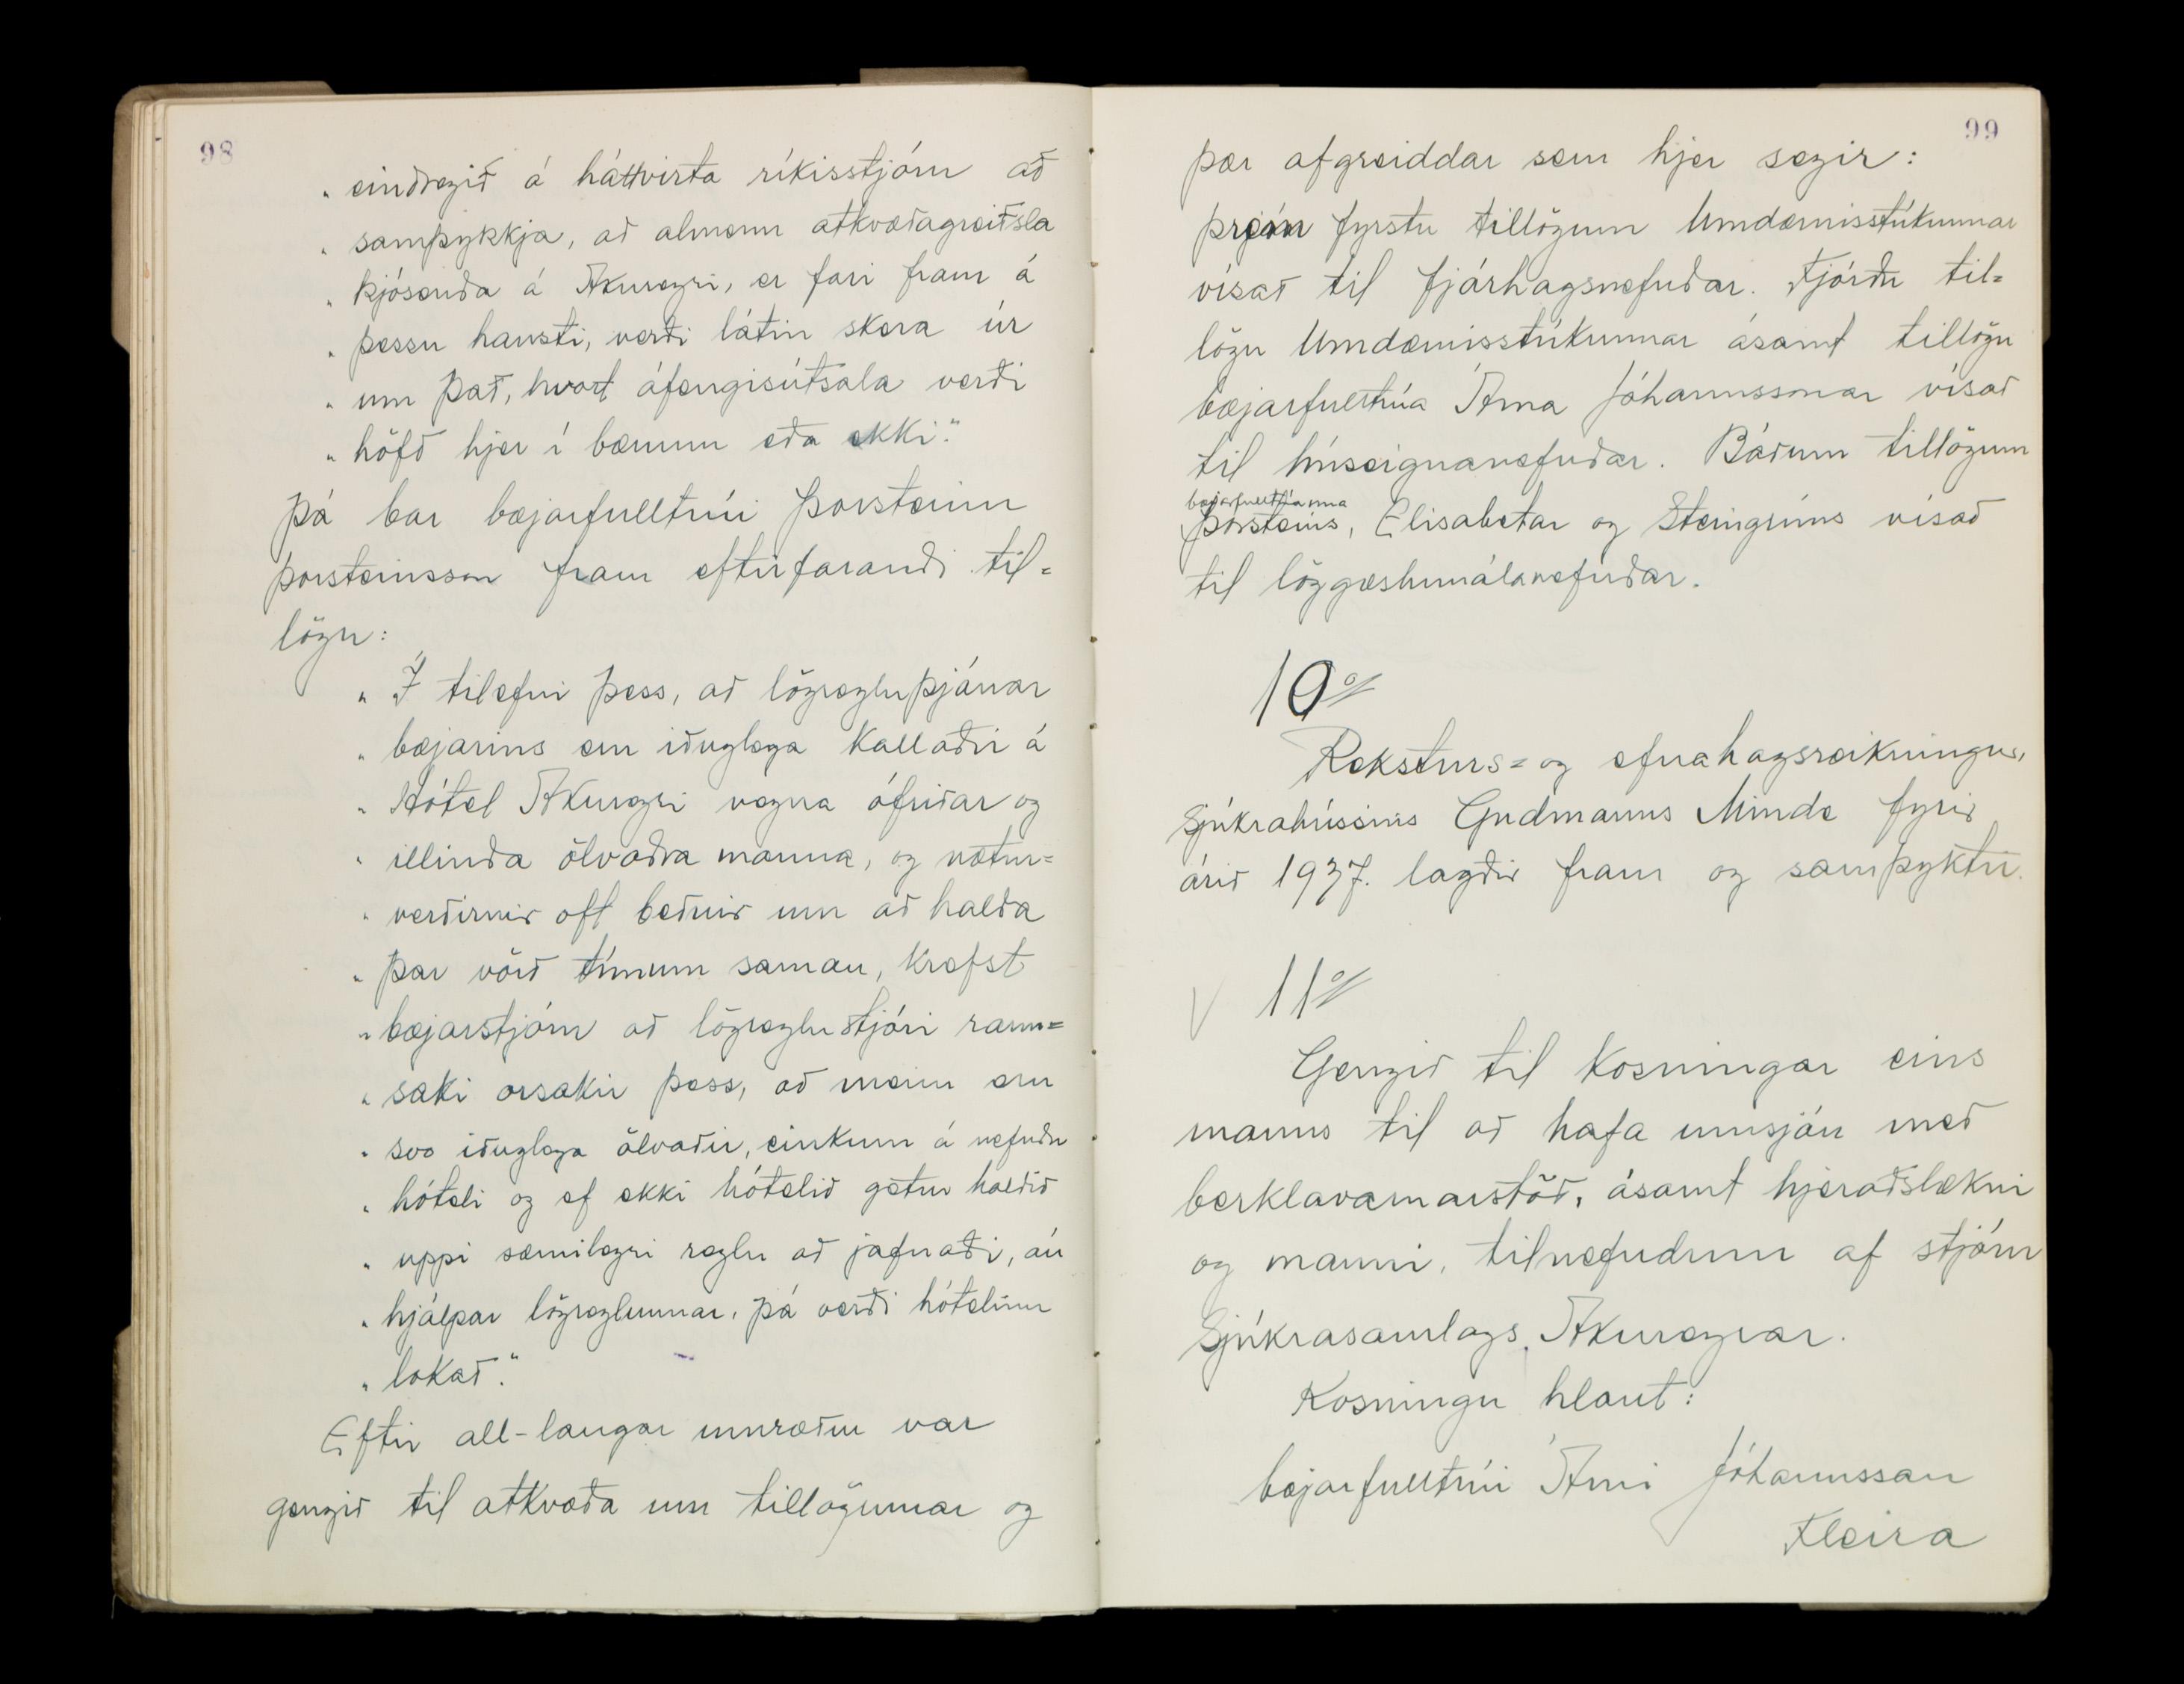 98
„ eindregið á háttvirta ríkisstjórn að
„ samþykkja, að almenn atkvæðagreiðsla
„ kjósenda á Akureyri, er fari fram á
„ þessu hausti, verði látin skera úr
„ um það, hvort áfengisútsala verði
„ höfð hjer í bænum eða ekki."
Þá bar bæjarfulltrúi Þorsteinn
Þorsteinsson fram eftirfarandi til=
lögu:
„ Í tilefni þess, að lögregluþjónar
„ bæjarins eru iðuglega kallaðir á
„ Hótel Akureyri vegna ófriðar og
„ illinda ölvaðra manna, og nætur=
„ verðirnir oft beðnir um að halda
„ þar vörð tímum saman, krefst
„ bæjarstjórn að lögreglustjóri rann=
„ saki orsakir þess, að menn eru
„ svo iðuglega ölvaðir, einkum á nefndu
„ hóteli og ef ekki hótelið getur haldið
„ uppi sæmilegri reglu að jafnaði, án
„ hjálpar lögreglunnar, þá verði hótelinu
„ lokað."
Eftir all-langar umræður var
gengið til atkvæða um tillögurnar og
99
þær afgreiddar sem hjer segir:
þrjám fyrstu tillögum Umdæmisstúkunnar
vísað til fjárhagsnefndar. Fjórðu til=
lögu Umdæmisstúkunnar ásamt tillögu
bæjarfulltrúa Árna Jóhannssonar vísað
til húseignanefndar. Báðum tillögum
bæjarfulltrúanna
Þorsteins, Elisabetar og Steingríms vísað
til löggæslumálanefndar.
10º/
Reksturs= og efnahagsreikningur,
Sjúkrahússins Gudmanns Minde fyrir
árið 1937. lagðir fram og samþyktir.
V 11º/
Gengið til kosningar eins
manns til að hafa umsjón með
berklavarnarstöð, ásamt hjeraðslækni
og manni, tilnefndum af stjórn
Sjúkrasamlags Akureyrar.
Kosningu hlaut:
bæjarfulltrúi Árni Jóhannsson
Fleira